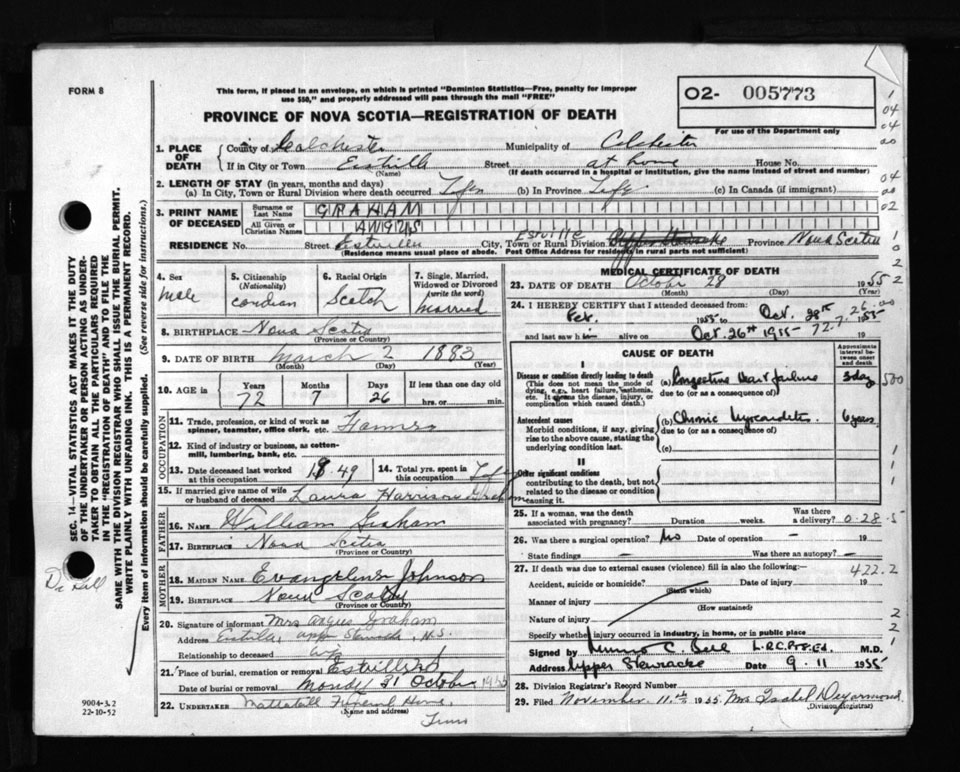 FORM 8
This form, if placed in an envelope, on which is printed "Dominion Statistics—Free, penalty for improper
use $50," and properly addressed will pass through the mail "FREE"
PROVINCE OF NOVA SCOTIA—REGISTRATION OF DEATH
O2- 005773
For use of the Department only
1. PLACE OF DEATH
County of Colchester Municipality of Colchester
If in City or Town Estville Street at home House No.
(Name) (If death occurred in a hospital or institution, give the name instead of street and number)
2. LENGTH OF STAY (in years, months and days)
(a) In City, Town or Rural Division where death occurred Life (b) In Province Life (c) In Canada (if immigrant)
3. PRINT NAME OF DECEASED
Surname or Last Name GRAHAM
All Given or Christian Names ANGUS
RESIDENCE No. Street Estville City, Town or Rural Division Estville Upper Stewiacke Province Nova Scotia
(Residence means usual place of abode. Post Office Address for residents in rural parts not sufficient)
4. Sex
male
5. Citizenship
(Nationality)
6. Racial Origin
Scotch
7. Single, Married, Widowed or Divorced
(write the word)
Married
8. BIRTHPLACE Nova Scotia
(Province or Country)
9. DATE OF BIRTH March 2 1883
(Month) (Day) (Year)
10. AGE in
Years Months Days If less than one day old
72 7 26 hrs. or min.
OCCUPATION
11. Trade, profession, or kind of work as
spinner, teamster, office clerk, etc.
12. Kind of industry or business, as cotton-
mill, lumbering, bank, etc.
13. Date deceased last worked
at this occupation 1949
14. Total yrs. spent in
this occupation Life
15. If married give name of wife
or husband of deceased Laura Harrison Graham
FATHER
16. NAME William Graham
17. BIRTHPLACE Nova Scotia
(Province or Country)
MOTHER
18. MAIDEN NAME Evangeline Johnson
19. BIRTHPLACE Nova Scotia
(Province or Country)
20. Signature of informant Mrs Angus Graham
Address Estville, Upper Stewiacke, N.S.
Relationship to deceased wife
21. Place of burial, cremation or removal
Date of burial or removal Monday 31 October 1955
22. UNDERTAKER Mattatall Funeral Home,
(Name and address)
Truro
9004-3.2
22-10-52
MEDICAL CERTIFICATE OF DEATH
23. DATE OF DEATH October 28 1955
(Month) (Day) (Year)
24. I HEREBY CERTIFY that I attended deceased from:
Feb. 1955 to Oct. 28th 1955
and last saw h alive on Oct. 26th 1955
72.7.26.00
CAUSE OF DEATH
Approximate interval between onset and death
I
Disease or condition directly leading to death
(This does not mean the mode of dying, e.g., heart failure, asthenia, etc. It means the disease, injury, or complication which caused death.)
(a) Congestive Heart failure 3 day
due to (or as a consequence of)
Antecedent causes
Morbid conditions, if any, giving rise to the above cause, stating the underlying condition last.
(b) Chronic Myocarditis 6 years
due to (or as a consequence of)
(c)
II
Other significant conditions
contributing to the death, but not related to the disease or condition causing it.
25. If a woman, was the death
associated with pregnancy? Duration weeks. Was there a delivery? 0-28-5
26. Was there a surgical operation? No Date of operation – 19
State findings – Was there an autopsy? –
27. If death was due to external causes (violence) fill in also the following:— 422.2
Accident, suicide or homicide? Date of injury 19
(State which)
Manner of injury
(How sustained)
Nature of injury
Specify whether injury occurred in industry, in home, or in public place
Signed by C. Bell L.R.C.P.&S.Ed. M.D.
Address Upper Stewiacke Date 9. 11 1955
28. Division Registrar's Record Number
29. Filed November 11th 1955 Mrs Isabel Deyarmond
(Division Registrar)
SEC. 14—VITAL STATISTICS ACT MAKES IT THE DUTY
OF THE UNDERTAKER OR PERSON ACTING AS UNDER-
TAKER TO OBTAIN ALL THE PARTICULARS REQUIRED
IN THE "REGISTRATION OF DEATH" AND TO FILE THE
SAME WITH THE DIVISION REGISTRAR WHO SHALL ISSUE THE BURIAL PERMIT.
WRITE PLAINLY WITH UNFADING INK. THIS IS A PERMANENT RECORD.
Every item of information should be carefully supplied. (See reverse side for instructions.)